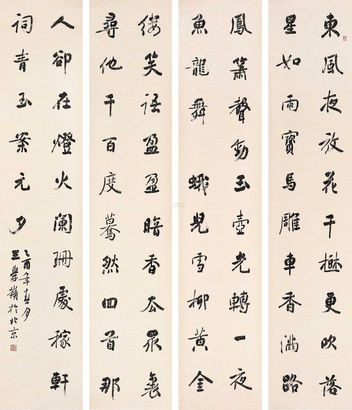 東風夜放花千樹更吹落
星如雨寶馬雕車香滿路
鳳簫聲動玉壺光轉一夜
魚龍舞蛾兒雪柳黃金
縷笑語盈盈暗香去眾裏
尋他千百度驀然回首那
人卻在燈火闌珊處稼軒
詞青玉案元夕
乙酉年十月
王學嶺於北京